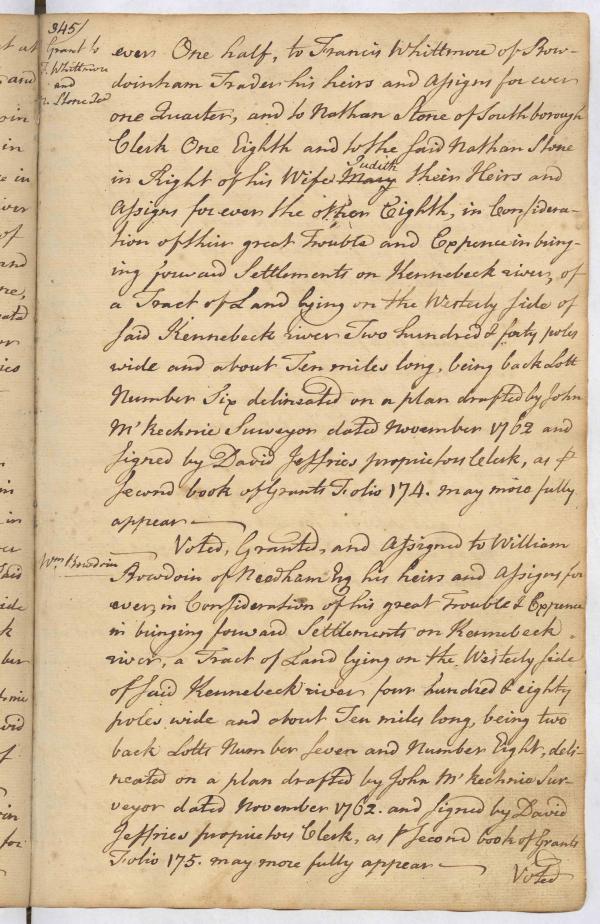 345/
Grant to
F. Whittmore
and
N. Stone Ded
ever One half, to Francis Whittmore of Bow-
doinham Trader his heirs and Assigns for ever
one Quarter, and to Nathan Stone of Southborough
Clerk One Eighth and to the said Nathan Stone
Judith
in Right of his Wife Mary their Heirs and
Assigns for ever the other Eighth, in Considera-
tion of their great Trouble and Expence in bring-
ing forward Settlements on Kennebeck river, of
a Tract of Land lying on the Westerly side of
said Kennebeck river Two hundred & forty poles
wide and about Ten miles long, being back Lott
Number Six delineated on a plan drafted by John
McKechnie Surveyor dated November 1762 and
signed by David Jeffries proprietors Clerk, as p
second book of Grants Folio 174. may more fully
appear
Wm Bowdoin
Voted, Granted, and Assigned to William
Bowdoin of Needham Esq his heirs and Assigns for
ever, in Consideration of his great Trouble & Expence
in bringing forward Settlements on Kennebeck
river, a Tract of Land lying on the Westerly side
of said Kennebeck river four hundred & eighty
poles wide and about Ten miles long, being two
back Lotts Number Seven and Number Eight, deli-
neated on a plan drafted by John McKechnie Sur-
veyor dated November 1762. and signed by David
Jeffries proprietors Clerk, as p second book of Grants
Folio 175. may more fully appear
Voted